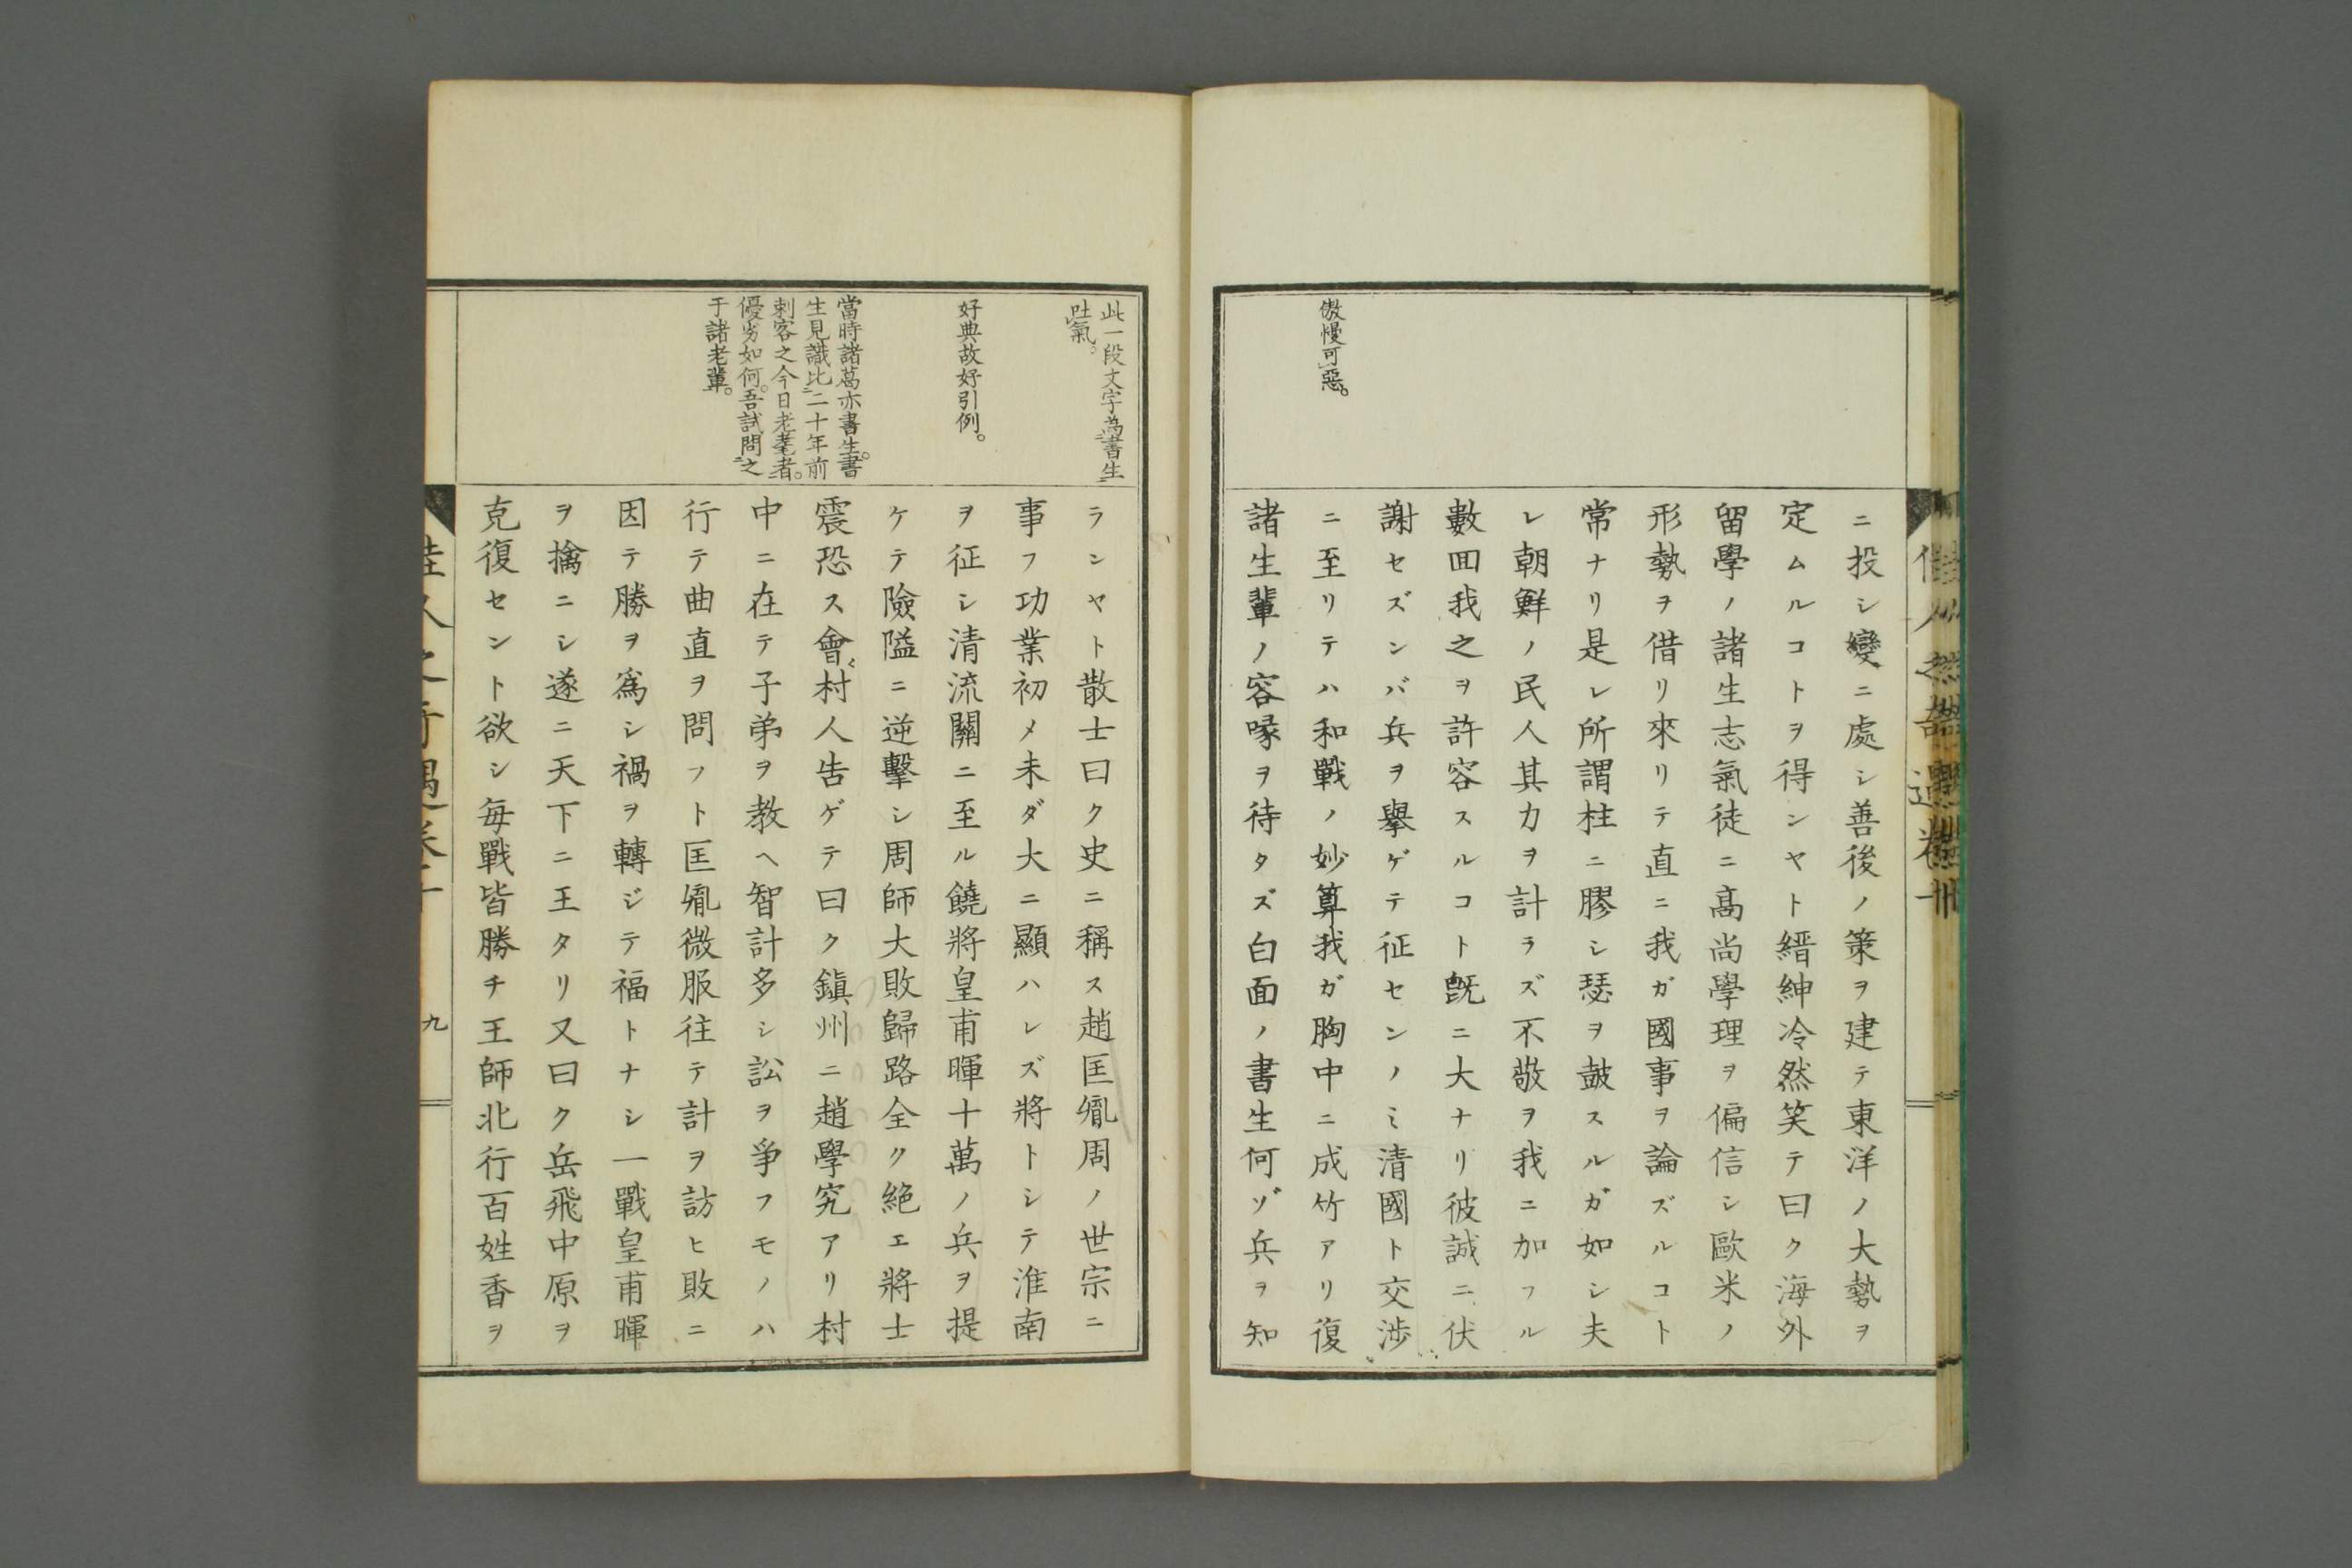 ニ投シ變ニ處シ善後ノ策ヲ建テ東洋ノ大勢ヲ
定ムルコトヲ得ンヤト縉紳冷然笑テ曰ク海外
留學ノ諸生志氣徒ニ髙尚學理ヲ偏信シ歐米ノ
形勢ヲ借リ來リテ直ニ我ガ國事ヲ論ズルコト
常ナリ是レ所謂柱ニ膠シ瑟ヲ鼓スルガ如シ夫
レ朝鮮ノ民人其力ヲ計ラズ不敬ヲ我ニ加フル
數回我之ヲ許容スルコト既ニ大ナリ彼誠ニ伏
謝セズンバ兵ヲ擧ゲテ征センノミ清國ト交渉
ニ至リテハ和戰ノ妙算我ガ胸中ニ成竹アリ復
諸生輩ノ容喙ヲ待タズ白面ノ書生何ゾ兵ヲ知
傲慢可惡。
ランヤト散士曰ク史ニ稱ス趙匡胤周ノ世宗ニ
事フ功業初メ未ダ大ニ顯ハレズ將トシテ淮南
ヲ征シ清流關ニ至ル饒將皇甫暉十萬ノ兵ヲ提
ケテ險隘ニ逆擊シ周師大敗歸路全ク絶エ將士
震恐ス會〻村人告ゲテ曰ク鎭州ニ趙學究アリ村
中ニ在テ子弟ヲ教ヘ智計多シ訟ヲ爭フモノハ
行テ曲直ヲ問フト匡胤微服往テ計ヲ訪ヒ敗ニ
因テ勝ヲ爲シ禍ヲ轉ジテ福トナシ一戰皇甫暉
ヲ擒ニシ遂ニ天下ニ王タリ又曰ク岳飛中原ヲ
克復セント欲シ毎戰皆勝チ王師北行百姓香ヲ
此一段文字為書生
吐氣。
好典故好引例。
當時諸葛亦書生。書
生見識比二十年前
刺客之今日老耄者。
優劣如何。吾試問之
于諸老輩。
佳人之奇遇卷十
九